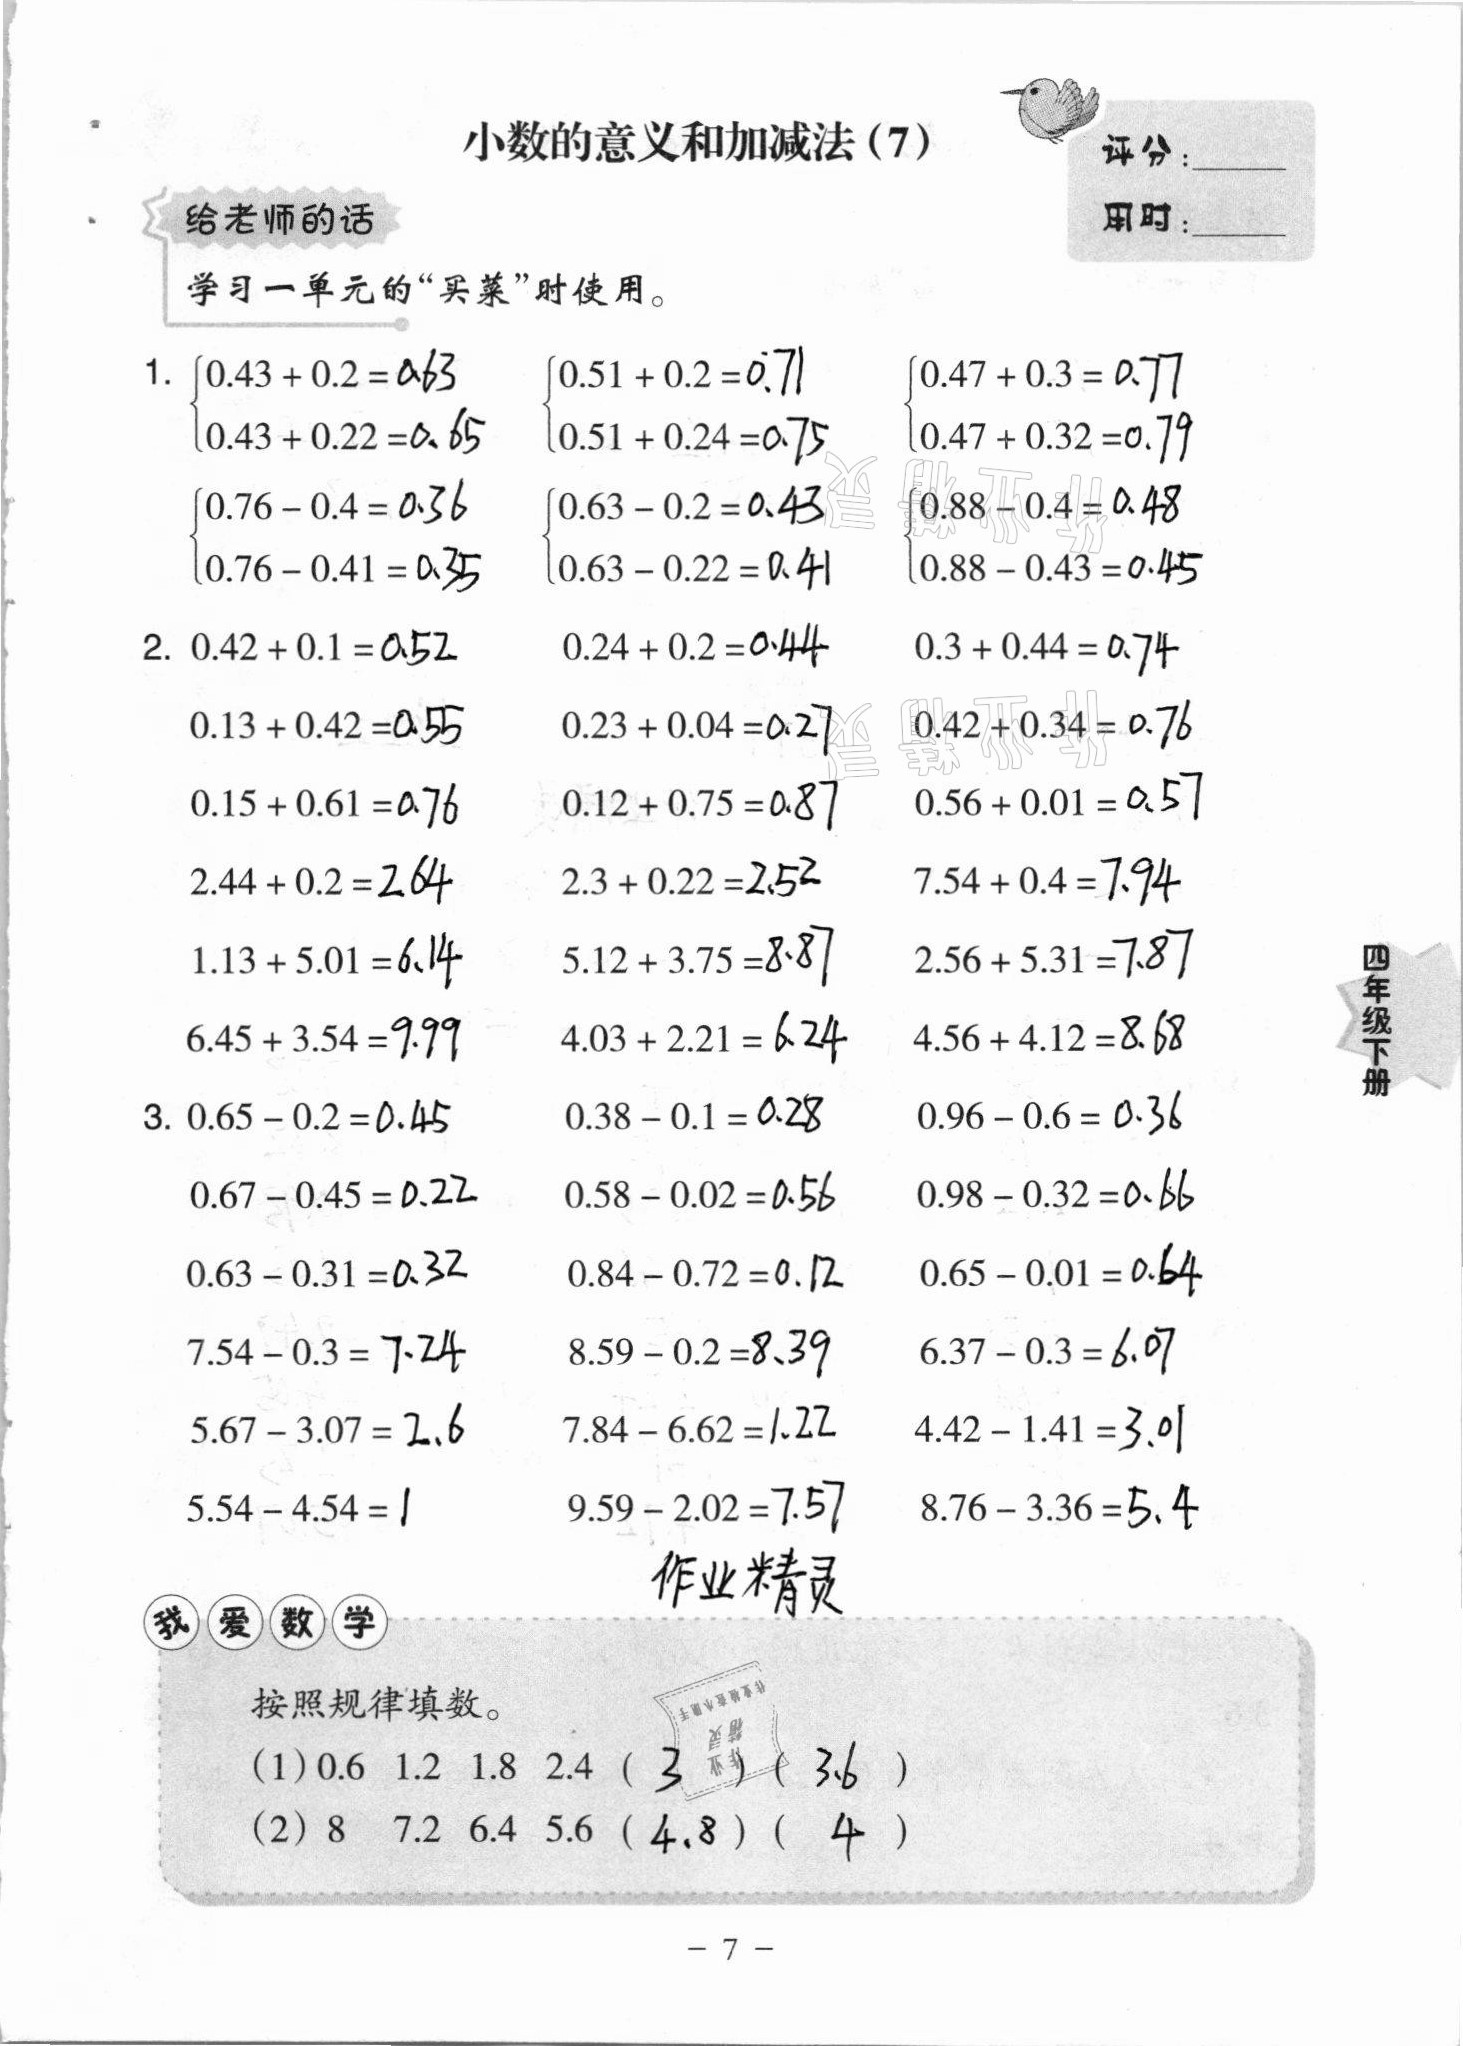 小数的意义和加减法(7)
评分:
用时:
给老师的话
学习一单元的“买菜”时使用。
1. 0.43+0.2=0.63 0.51+0.2=0.71 0.47+0.3=0.77
0.43+0.22=0.65 0.51+0.24=0.75 0.47+0.32=0.79
0.76-0.4=0.36 0.63-0.2=0.43 0.88-0.4=0.48
0.76-0.41=0.35 0.63-0.22=0.41 0.88-0.43=0.45
2. 0.42+0.1=0.52 0.24+0.2=0.44 0.3+0.44=0.74
0.13+0.42=0.55 0.23+0.04=0.27 0.42+0.34=0.76
0.15+0.61=0.76 0.12+0.75=0.87 0.56+0.01=0.57
2.44+0.2=2.64 2.3+0.22=2.52 7.54+0.4=7.94
1.13+5.01=6.14 5.12+3.75=8.87 2.56+5.31=7.87
6.45+3.54=9.99 4.03+2.21=6.24 4.56+4.12=8.68
3. 0.65-0.2=0.45 0.38-0.1=0.28 0.96-0.6=0.36
0.67-0.45=0.22 0.58-0.02=0.56 0.98-0.32=0.66
0.63-0.31=0.32 0.84-0.72=0.12 0.65-0.01=0.64
7.54-0.3=7.24 8.59-0.2=8.39 6.37-0.3=6.07
5.67-3.07=2.6 7.84-6.62=1.22 4.42-1.41=3.01
5.54-4.54=1 9.59-2.02=7.57 8.76-3.36=5.4
作业精灵
四年级下册
我爱数学
按照规律填数。
(1)0.6 1.2 1.8 2.4 ( 3 ) ( 3.6 )
(2) 8 7.2 6.4 5.6 ( 4.8 ) ( 4 )
作业精灵
- 7 -